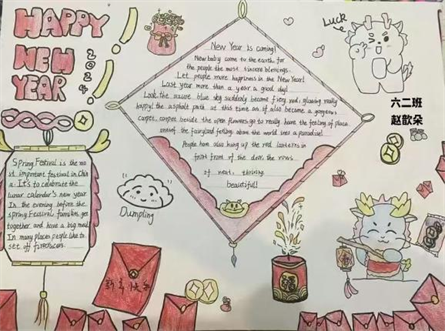 HAPPY
NEW
YEAR
2024
Luck
New Year is coming!
New baby come to the earth for
the people the most sincere blessings.
Let people more happiness in the New Year!
Last year more than a year a good day!
Look the azure blue sky suddenly become fiery red, glaring really
happy! the asphalt path at this time as if also become a gorgeous
carpet, carpet beside the open flowers go to really have the feeling of place
one of the fairyland feeling above the world into a paradise!
People have also hung up the red lanterns in
front from of the door, the rows
of neat, thriving
beautiful!
六二班
赵歆朵
Spring Festival is the mo
st important festival in Chin
a. It's to celebrate the
lunar calendar's new year
In the evening before the
spring Festival families get
together and have a big meal
In many places people like to
set off firecracers.
Dumpling
新年快乐
福